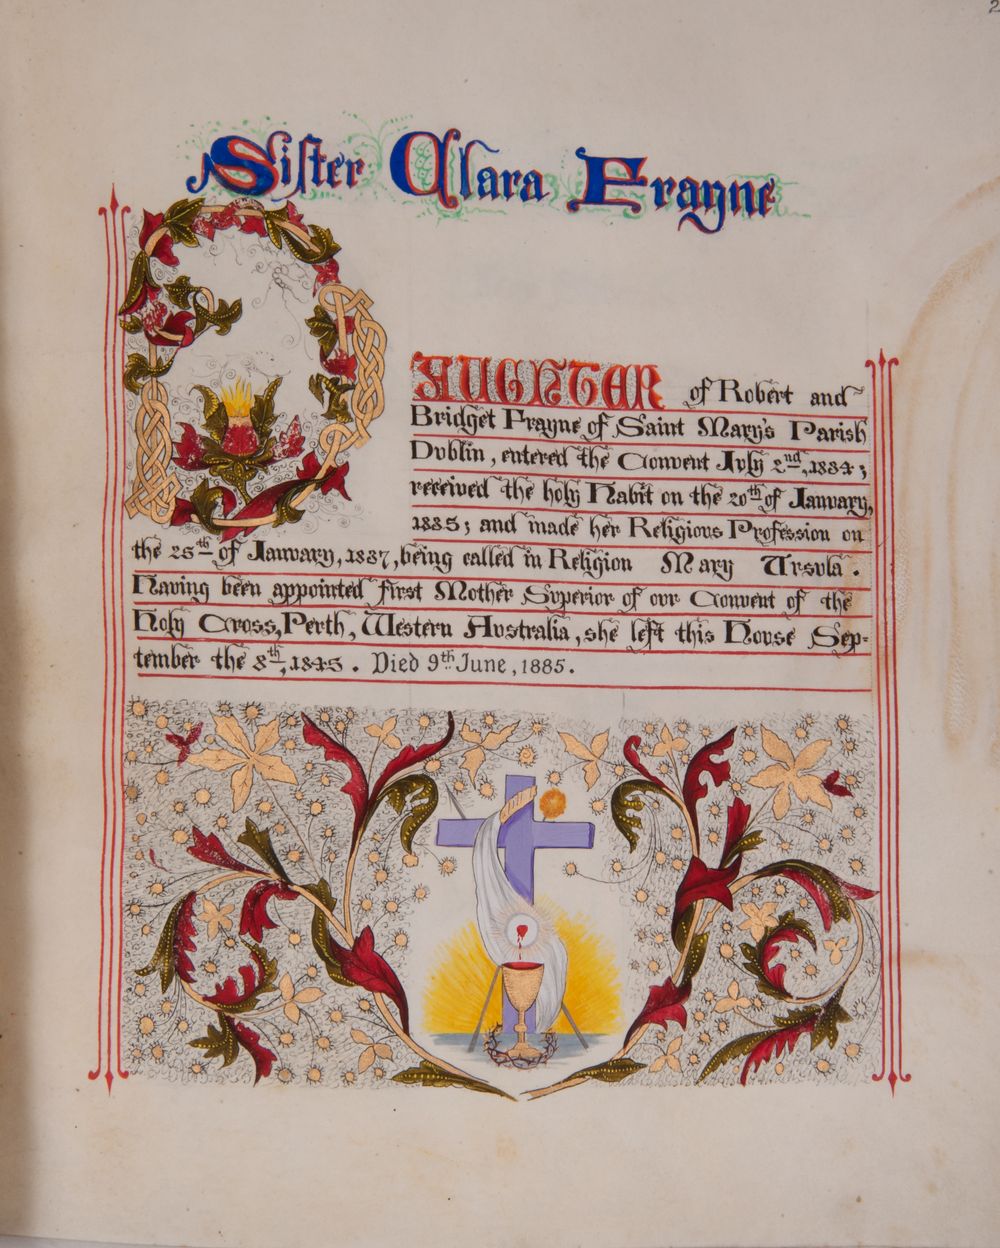 Sister Clara Frayne
DAUGHTER of Robert and
Bridget Frayne of Saint Mary's Parish
Dublin, entered the Convent July 2nd, 1834;
received the holy Habit on the 20th of January,
1835; and made her Religious Profession on
the 25th of January, 1837, being called in Religion Mary Ursula.
Having been appointed first Mother Superior of our Convent of the
Holy Cross, Perth, Western Australia, she left this House Sep-
tember the 8th, 1845. Died 9th June, 1885.